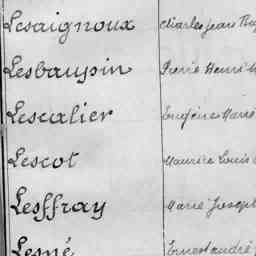 Lesaignoux Charles Jean
Lesbaupin Pierre Henri
Lescalier Eugène Marie
Lescot Maurice Louis
Lesffray Marie Joseph
Lesné Ernest André